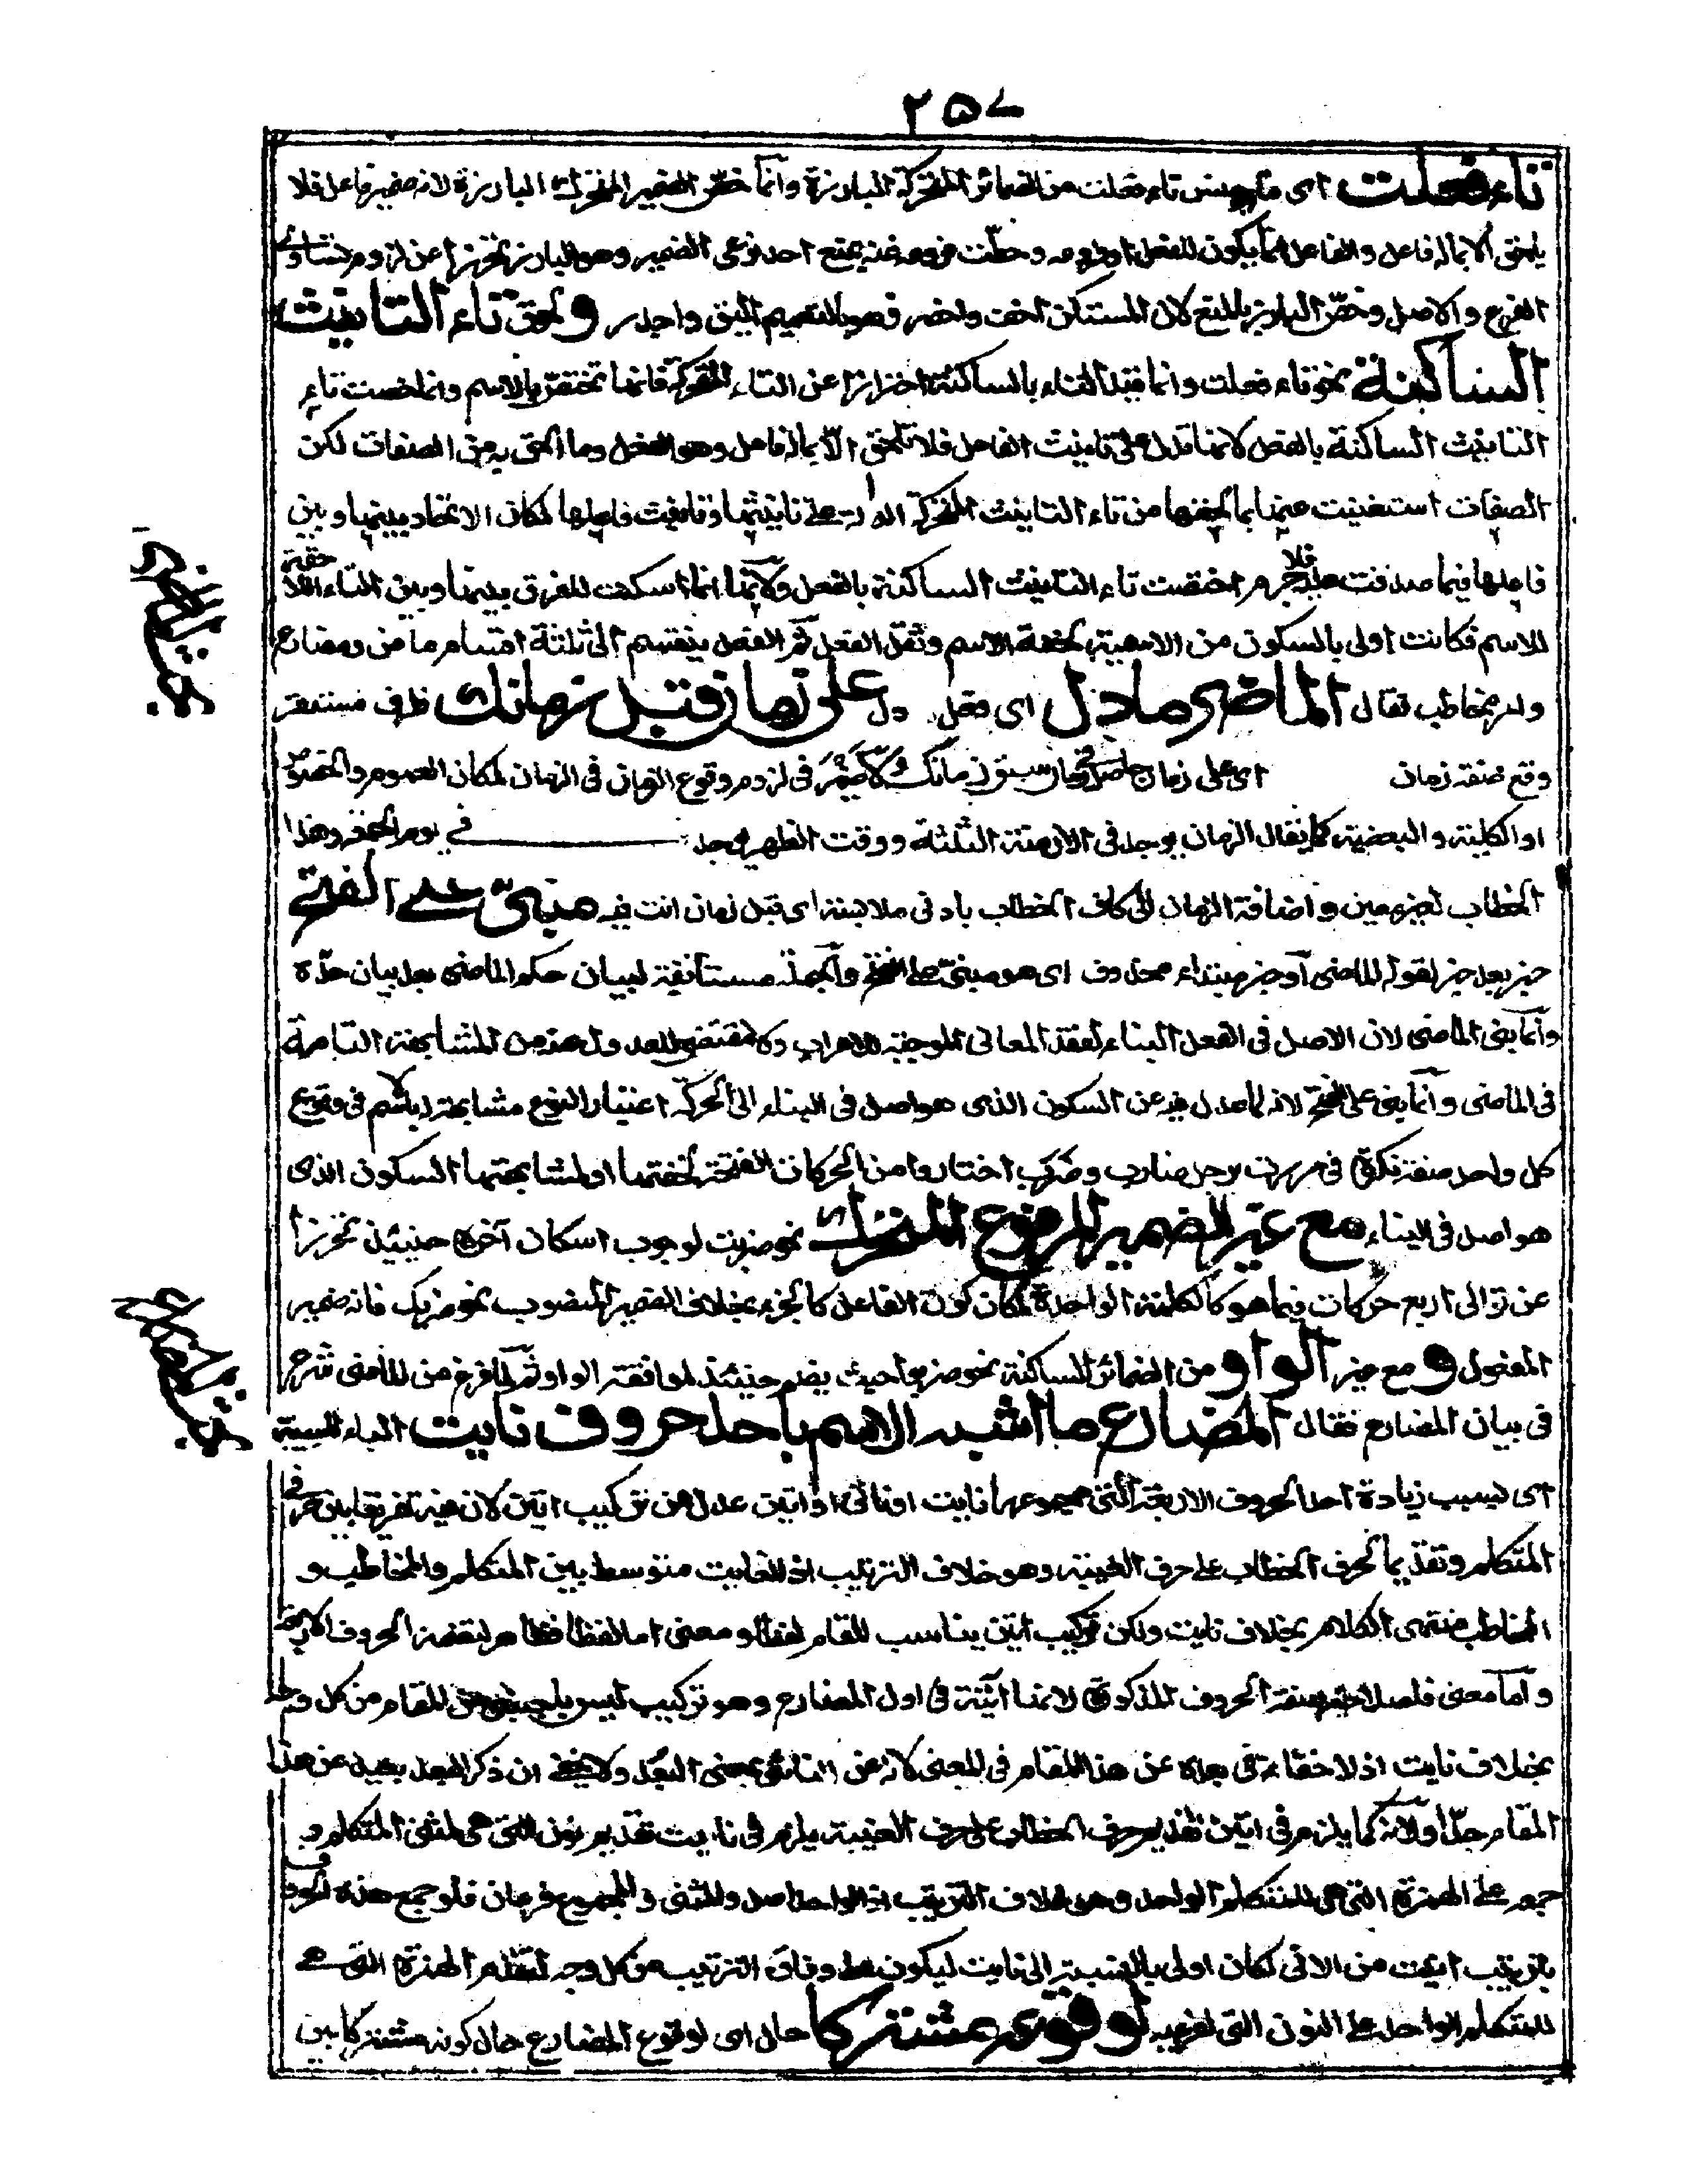 ٢٥٧
تاء فعلت اى ما من جنس تاء فعلت من الضمائر المتحركة البارزة وانما خص الضمير المتحرك البارزة لانه ضمير فاعل فلا
يلحق الا بماله فاعل والفاعل انما يكون للفعل او فروعه وحطت فروعه عنه بمنع احد نوعى الضمير وهو البارز تحرزا عن لزوم تساوى
الفرع والاصل وخص البارز بالمنع لان المستكن اخف واخصر فهو بالتعميم اليق واجدر و لحوق تاء التانيث
الساكنة نحو تاء فعلت وانما قيد التاء بالساكنة احترازا عن التاء المتحركة فانها تختص بالاسم وانما خصت تاء
التانيث الساكنة بالفعل لانها تدل على تانيث الفاعل فلا تلحق الا بماله فاعل وهو الفعل وما الحق به من الصفات لكن
الصفات استغنيت عنها بما لحقها من تاء التانيث المتحركة الدالة على تانيثها وتانيث فاعلها لمكان الاتحاد بينها وبين
فاعلها فيما صدقت عليه فلا جرم اختصت تاء التانيث الساكنة بالفعل ولانها انما اسكنت للفرق بينها وبين التاء اللاحقة
للاسم فكانت اولى بالسكون من الاسمية لخفة الاسم وثقل الفعل ثم الفعل ينقسم الى ثلثة اقسام ماض ومضارع
وامر مخاطب فقال الماضى ما دل اى فعل دل على زمان قبل زمانك ظرف مستقر
وقع صفة زمان اى على زمان حاصل سبق زمانك ولا ضير فى لزوم وقوع الزمان فى الزمان لمكان العموم والخصوص
او الكلية والبعضية كما يقال الزمان يوجد فى الازمنة الثلثة ووقت الظهر يوجد فى يوم الجمعة وهذا
الخطاب لغير معين واضافة الزمان الى كاف الخطاب بادنى ملابسة اى قبل زمان انت فيه مبنى على الفتح
خبر بعد خبر لقوله الماضى او خبر مبتداء محذوف اى هو مبنى على الفتح والجملة مستانفة لبيان حكم الماضى بعد بيان حده
وانما بنى الماضى لان الاصل فى الفعل البناء لفقد المعانى الموجبة للاعراب ولا مقتضى للعدول عنه من المشابهة التامة
فى الماضى وانما بنى على الفتح لانه لما عدل فيه عن السكون الذى هو اصل فى البناء الى الحركة اعتبار النوع مشابهته بالاسم فى وقوع
كل واحد صفة نكرة فى مررت برجل ضارب وضرب اختاروا من الحركات الفتحة لخفتها او لمشابهتها السكون الذى
هو اصل فى البناء مع غير الضمير المرفوع المتحرك نحو ضربت لوجوب اسكان آخره حينئذ تحرزا
عن توالى اربع حركات فيما هو كالكلمة الواحدة لمكان كون الفاعل كالجزء بخلاف الضمير المنصوب نحو ضربك فانه ضمير
المفعول و مع غير الواو من الضمائر الساكنة نحو ضربوا حيث يضم حينئذ لموافقة الواو ثم لما فرغ من الماضى شرع
فى بيان المضارع فقال المضارع ما اشبه الاسم باحد حروف نايت الباء للسببية
اى بسبب زيادة احد الحروف الاربعة التى مجموعها نايت او نأتى او اتين عدل عن تركيب اتين لان فيه تفريقا بين حرفى
المتكلم وتقديما لحرف الخطاب على حرف الغيبة وهو خلاف الترتيب اذ الغايب متوسط بين المتكلم والمخاطب و
المخاطب منتهى الكلام بخلاف نايت ولكن تركيب اتين يناسب المقام لفظا ومعنى اما لفظا فظاهر لتضمنه الحروف الاربعة
واما معنى فلصلاحية صفة الحروف المذكورة لانها اتية فى اول المضارع وهو تركيب للمقام من كل وجه
بخلاف نايت اذ لا خفاء فى بعده عن هذا المقام فى المعنى لانه من الناى بمعنى البعد ولا يخفى ان ذكر البعد بعيد عن هذا
المقام جدا ولانه كما يلزم فى اتين تقديم حرف الخطاب على حرف الغيبة يلزم فى نايت تقديم نون التى هى لمثنى المتكلم و
جمعه على الهمزة التى هى للمتكلم الواحد وهو خلاف الترتيب اذ الواحد اصل والمثنى والمجموع فرعان فلو جمع هذه الحروف
بترتيب انيت من الانى لكان اولى بالنسبة الى نايت ليكون على وفاق الترتيب من كل وجه لتقدم الهمزة التى هى
للمتكلم الواحد على النون التى لغيره لوقوعه مشتركا حال اى لوقوع المضارع حال كونه مشتركا بين